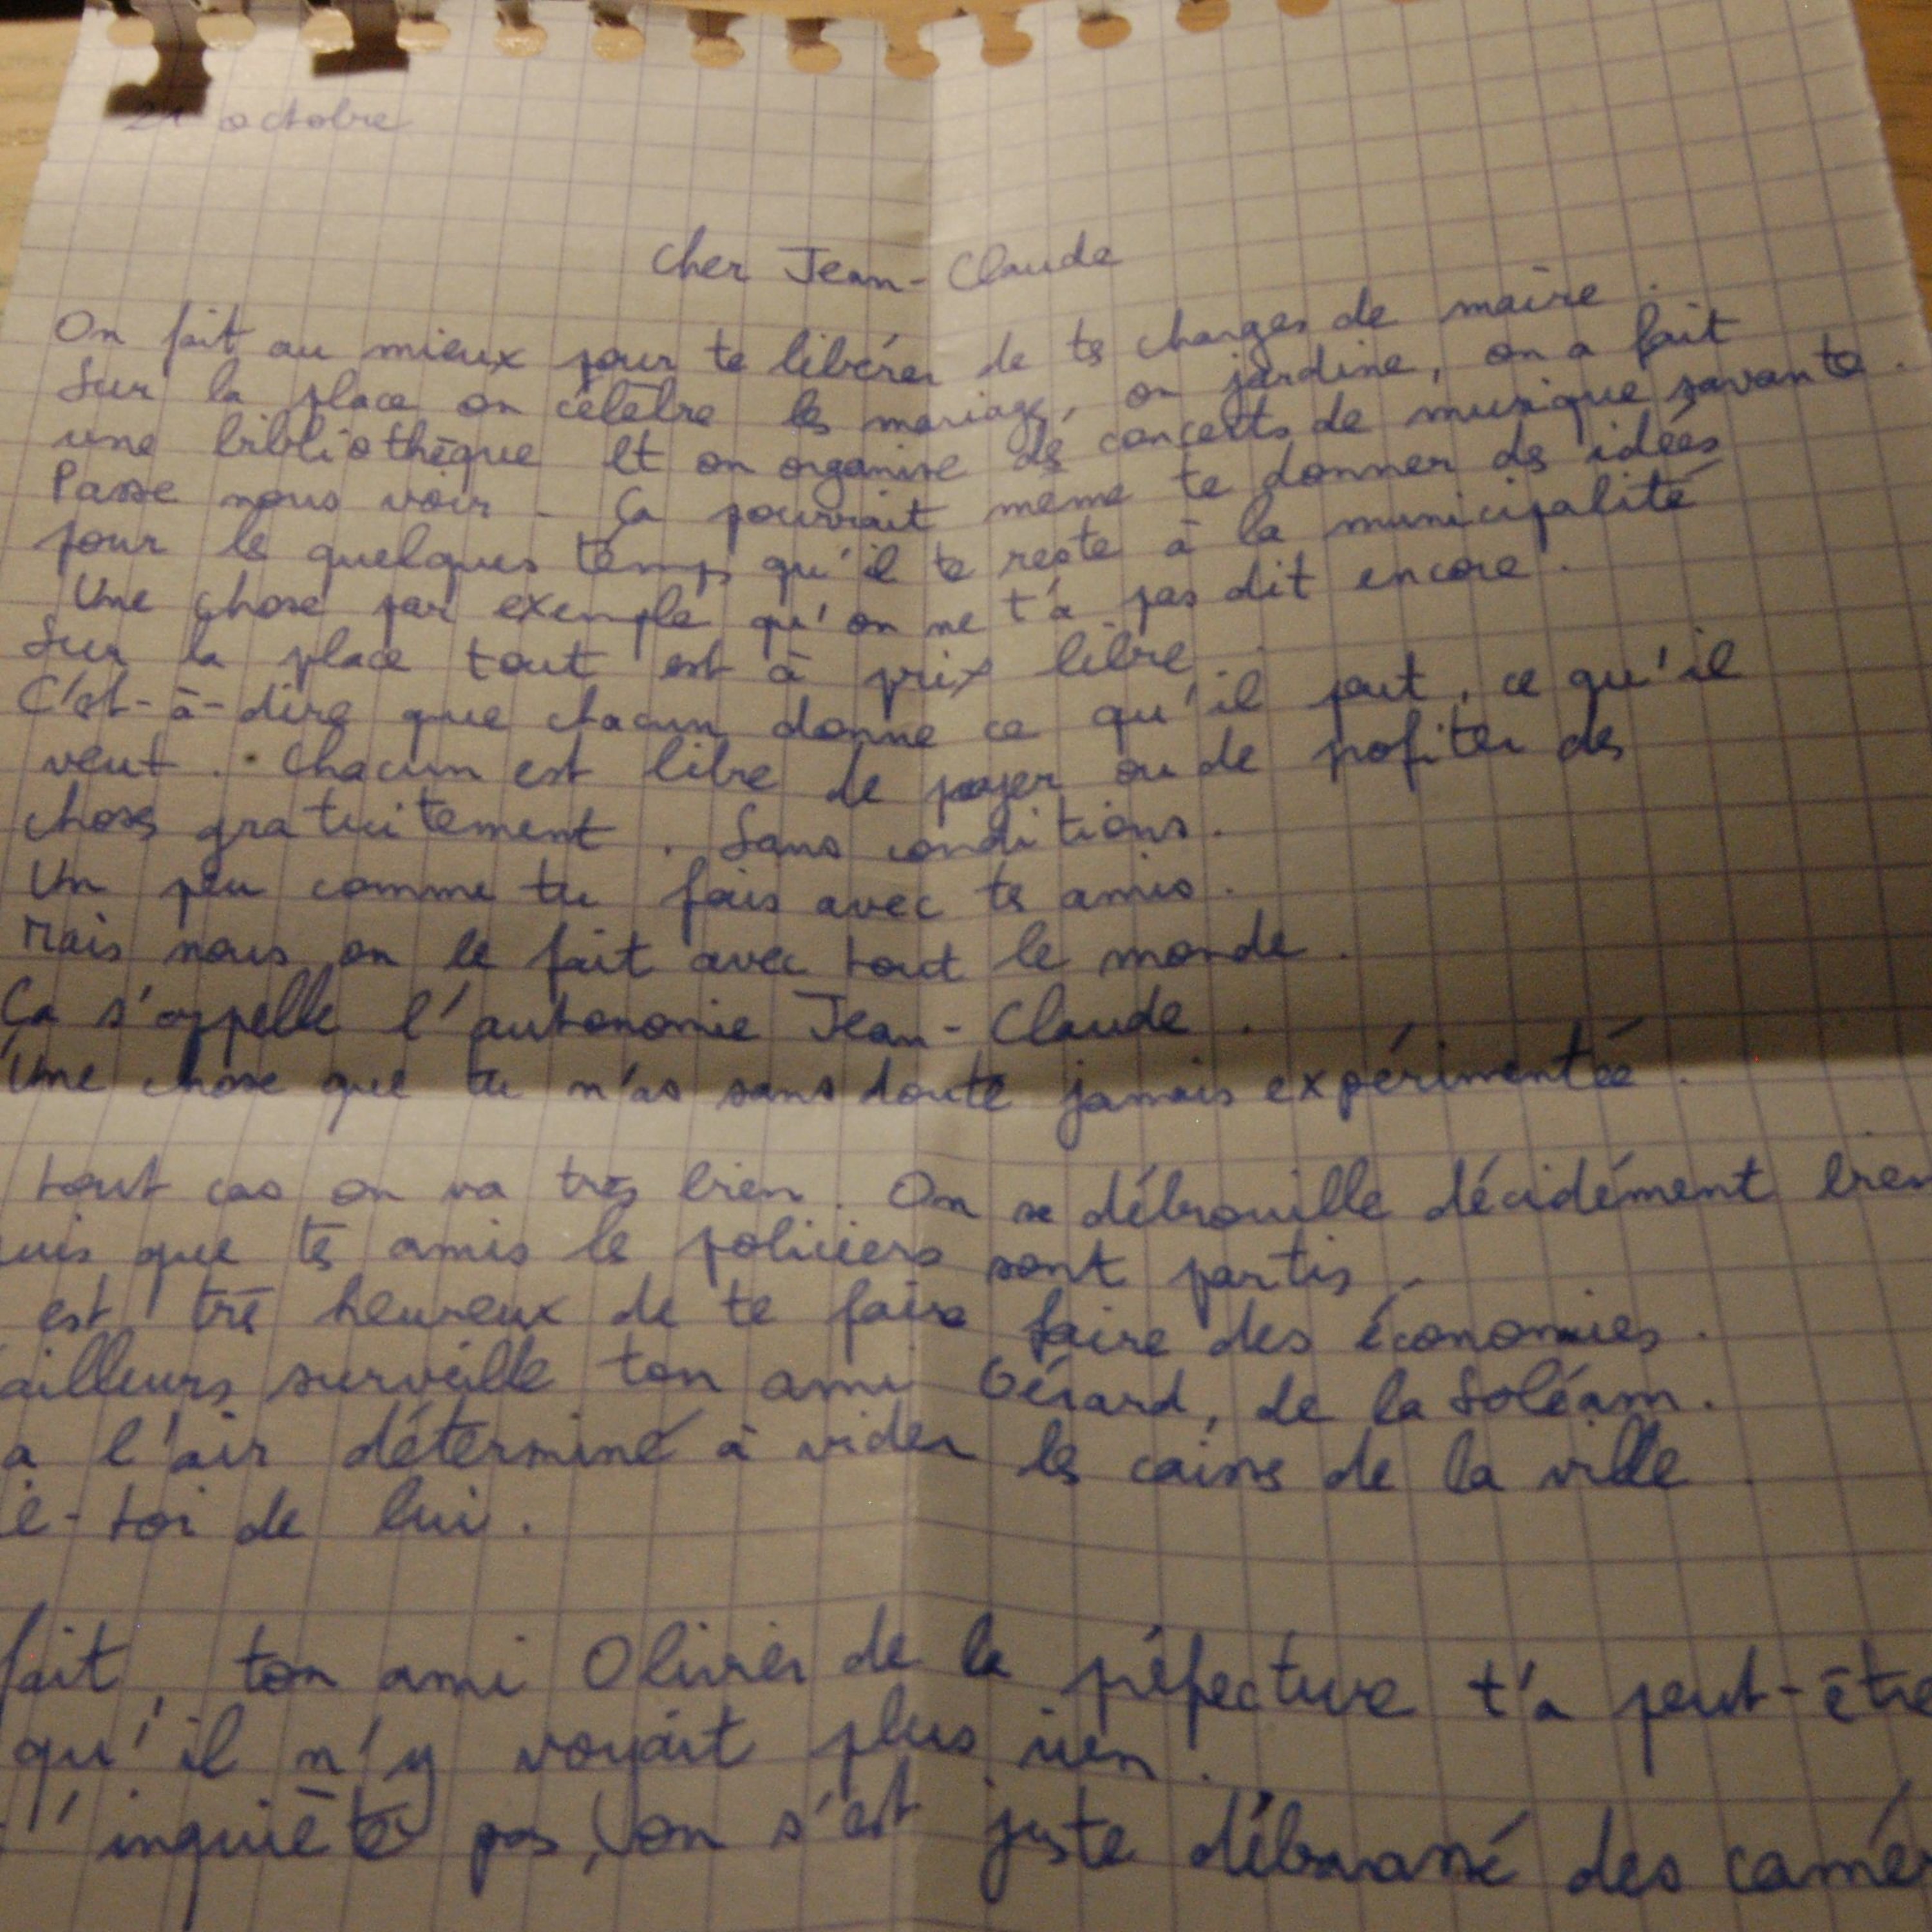 21 octobre
Cher Jean-Claude
On fait au mieux pour te libérer de tes charges de maire.
Sur la place on célèbre les mariages, on jardine, on a fait
une bibliothèque et on organise des concerts de musique savante.
Passe nous voir. Ça pourrait même te donner des idées
pour les quelques temps qu'il te reste à la municipalité
Une chose par exemple qu'on ne t'a pas dit encore.
Sur la place tout est à prix libre.
C'est-à-dire que chacun donne ce qu'il peut, ce qu'il
veut. Chacun est libre de payer ou de profiter des
choses gratuitement. Sans conditions.
Un peu comme tu fais avec tes amis.
Mais nous on le fait avec tout le monde.
Ça s'appelle l'autonomie Jean-Claude.
Une chose que tu n'as sans doute jamais expérimentée.
tout cas on va très bien. On se débrouille décidément bien
uis que tes amis les policiers sont partis.
est très heureux de te faire faire des économies.
ailleurs surveille ton ami Gérard, de la Soléam.
a l'air déterminé à vider les caisses de la ville.
ie-toi de lui.
fait, ton ami Olivier de la préfecture t'a peut-être
qu'il n'y voyait plus rien.
t'inquiète pas, on s'est juste débarrassé des camér